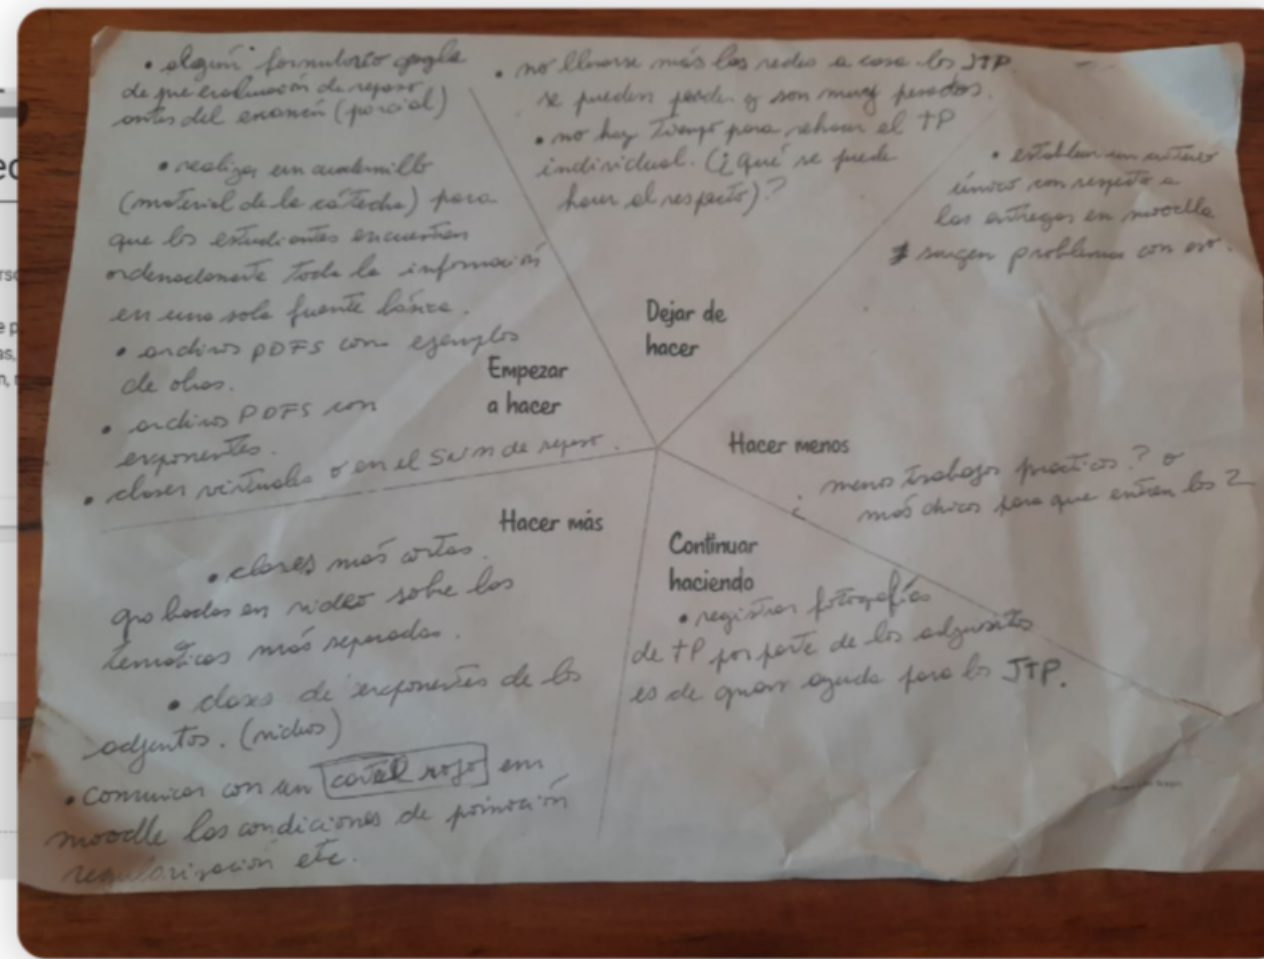 • algún formulario google
de pre evaluación de repaso
antes del examen (parcial)
• realizar un cuadernillo
(material de la cátedra) para
que los estudiantes encuentren
ordenadamente toda la información
en una sola fuente básica.
• archivos PDFS con ejemplos
de obras.
• archivos PDFS con
exponentes.
• clases virtuales o en el SUM de repaso.
Empezar
a hacer
• no llevarse más las redes a casa los JTP
se pueden perder y son muy pesados.
• no hay tiempo para rehacer el TP
individual. (¿Qué se puede
hacer al respecto)?
Dejar de
hacer
• establecer un criterio
único con respecto a
las entregas en moodle
surgen problemas con eso.
Hacer menos
¿ menos trabajos prácticos? o
más chicos para que entren los 2
Hacer más
• clases más cortas
grabadas en video sobre las
temáticas más separadas.
• clases de exponentes de los
adjuntos. (videos)
• comunicar con un cartel rojo em
moodle las condiciones de promoción
regularización etc.
Continuar
haciendo
• registrar fotografías
de TP por parte de los adjuntos
es de gran ayuda para los JTP.